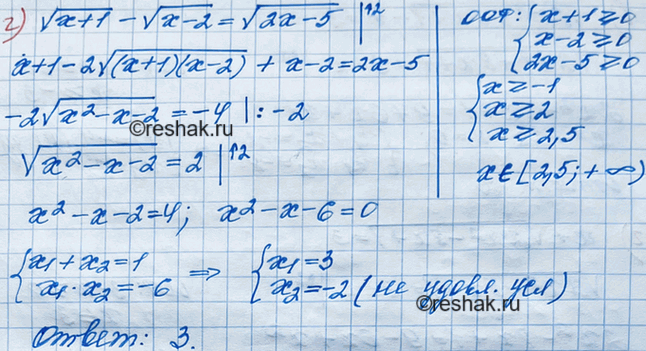 г) √(x+1) - √(x-2) = √(2x-5) |↑2
x+1-2√((x+1)(x-2)) + x-2=2x-5
-2√(x²-x-2) = -4 |:-2
©reshak.ru
√(x²-x-2) = 2 |↑2
x²-x-2=4; x²-x-6=0
{x₁+x₂=1
x₁·x₂=-6 ⇒ {x₁=3
x₂=-2 (не удовл. усл)
©reshak.ru
Ответ: 3.
ООФ: {x+1≥0
x-2≥0
2x-5≥0
{x≥-1
x≥2
x≥2,5
x∈[2,5;+∞)